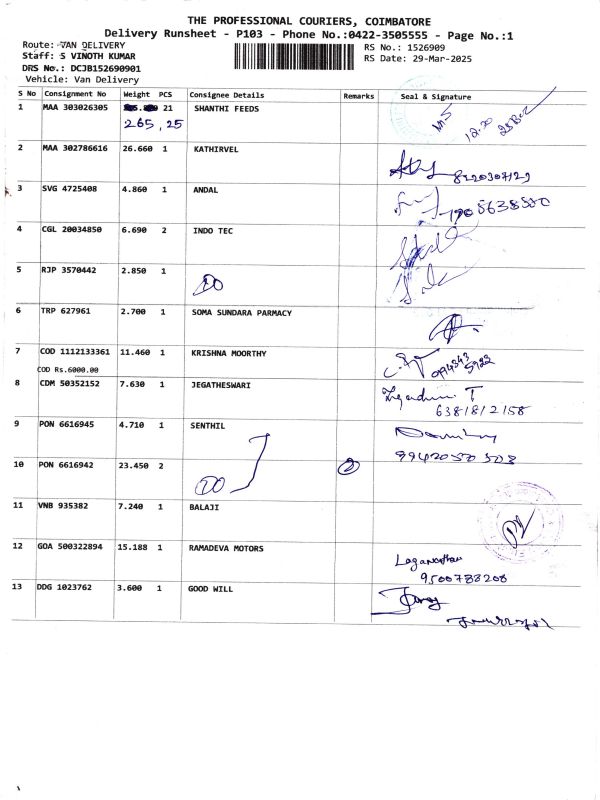 THE PROFESSIONAL COURIERS, COIMBATORE
Delivery Runsheet - P103 - Phone No.:0422-3505555 - Page No.:1
Route: VAN DELIVERY
RS No.: 1526909
Staff: S VINOTH KUMAR
RS Date: 29-Mar-2025
DRS No.: DCJB152690901
Vehicle: Van Delivery
S No Consignment No Weight PCS Consignee Details Remarks Seal & Signature
1 MAA 303026305 21 SHANTHI FEEDS
265, 25
2 MAA 302786616 26.660 1 KATHIRVEL
8220307129
3 SVG 4725408 4.860 1 ANDAL
4 CGL 20034850 6.690 2 INDO TEC
5 RJP 3570442 2.850 1
DO
6 TRP 627961 2.700 1 SOMA SUNDARA PARMACY
7 COD 1112133361 11.460 1 KRISHNA MOORTHY
COD Rs.6000.00
8 CDM 50352152 7.630 1 JEGATHESWARI
6381812158
9 PON 6616945 4.710 1 SENTHIL
9942050508
10 PON 6616942 23.450 2 DO 2
11 VNB 935382 7.240 1 BALAJI
12 GOA 500322894 15.188 1 RAMADEVA MOTORS
9500788208
13 DDG 1023762 3.600 1 GOOD WILL